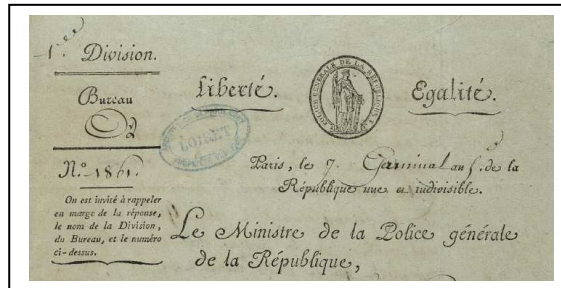 1.ère Division.
Bureau
N.º 1861.
On est invité à rappeler
en marge de la réponse,
le nom de la Division,
du Bureau, et le numéro
ci-dessus.
Liberté.
POLICE GÉNÉRALE DE LA RÉPUBLIQUE
Egalité.
LOIRET
Paris, le 7. Germinal an 5. de la
République une et indivisible.
Le Ministre de la Police générale
de la République,